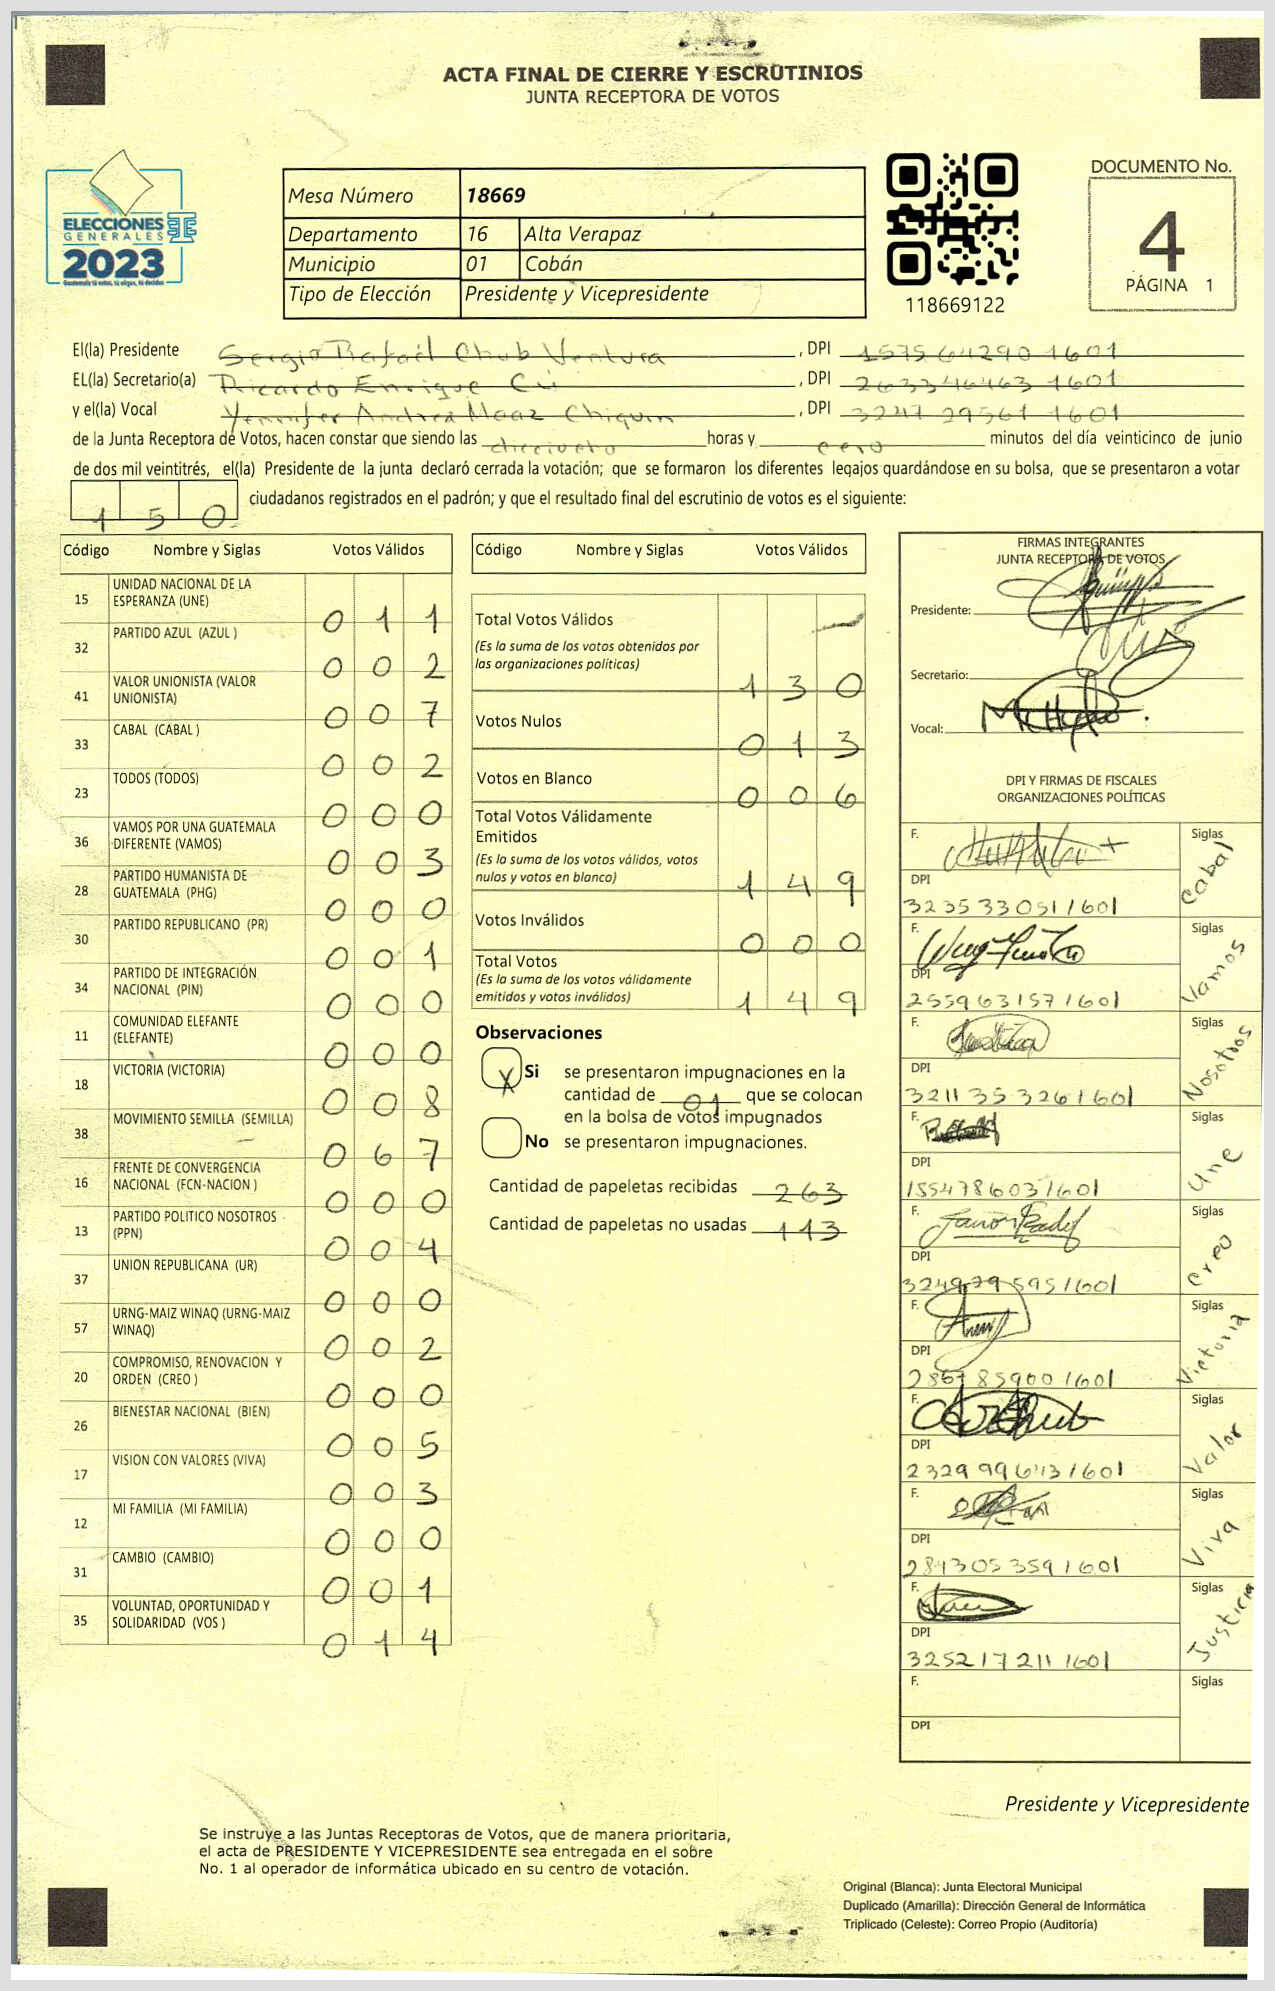 ACTA FINAL DE CIERRE Y ESCRUTINIOS
JUNTA RECEPTORA DE VOTOS
ELECCIONES
GENERALES
2023
Mesa Número 18669
Departamento 16 Alta Verapaz
Municipio 01 Cobán
Tipo de Elección Presidente y Vicepresidente
118669122
DOCUMENTO No.
4
PÁGINA 1
El(la) Presidente Sergio Rafael Chub Ventura , DPI 1575 64290 1601
EL(la) Secretario(a) Ricardo Enrique Cú , DPI 263346463 1601
y el(la) Vocal Yennifer Andrea Maaz Chiquin , DPI 3247 29561 1601
de la Junta Receptora de Votos, hacen constar que siendo las horas y cero minutos del día veinticinco de junio
de dos mil veintitrés, el(la) Presidente de la junta declaró cerrada la votación; que se formaron los diferentes legajos guardándose en su bolsa, que se presentaron a votar
150 ciudadanos registrados en el padrón; y que el resultado final del escrutinio de votos es el siguiente:
Código Nombre y Siglas Votos Válidos
15 UNIDAD NACIONAL DE LA ESPERANZA (UNE) 0 1 1
32 PARTIDO AZUL (AZUL ) 0 0 2
41 VALOR UNIONISTA (VALOR UNIONISTA) 0 0 7
33 CABAL (CABAL ) 0 0 2
23 TODOS (TODOS) 0 0 0
36 VAMOS POR UNA GUATEMALA DIFERENTE (VAMOS) 0 0 3
28 PARTIDO HUMANISTA DE GUATEMALA (PHG) 0 0 0
30 PARTIDO REPUBLICANO (PR) 0 0 1
34 PARTIDO DE INTEGRACIÓN NACIONAL (PIN) 0 0 0
11 COMUNIDAD ELEFANTE (ELEFANTE) 0 0 0
18 VICTORIA (VICTORIA) 0 0 8
38 MOVIMIENTO SEMILLA (SEMILLA) 0 6 7
16 FRENTE DE CONVERGENCIA NACIONAL (FCN-NACION ) 0 0 0
13 PARTIDO POLITICO NOSOTROS (PPN) 0 0 4
37 UNION REPUBLICANA (UR) 0 0 0
57 URNG-MAIZ WINAQ (URNG-MAIZ WINAQ) 0 0 2
20 COMPROMISO, RENOVACION Y ORDEN (CREO ) 0 0 0
26 BIENESTAR NACIONAL (BIEN) 0 0 5
17 VISION CON VALORES (VIVA) 0 0 3
12 MI FAMILIA (MI FAMILIA) 0 0 0
31 CAMBIO (CAMBIO) 0 0 1
35 VOLUNTAD, OPORTUNIDAD Y SOLIDARIDAD (VOS ) 0 1 4
Código Nombre y Siglas Votos Válidos
Total Votos Válidos
(Es la suma de los votos obtenidos por
las organizaciones políticas) 1 3 0
Votos Nulos 0 1 3
Votos en Blanco 0 0 6
Total Votos Válidamente
Emitidos
(Es la suma de los votos válidos, votos
nulos y votos en blanco) 1 4 9
Votos Inválidos 0 0 0
Total Votos
(Es la suma de los votos válidamente
emitidos y votos inválidos) 1 4 9
Observaciones
X Si se presentaron impugnaciones en la
cantidad de 01 que se colocan
en la bolsa de votos impugnados
No se presentaron impugnaciones.
Cantidad de papeletas recibidas 263
Cantidad de papeletas no usadas 113
FIRMAS INTEGRANTES
JUNTA RECEPTORA DE VOTOS
Presidente:
Secretario:
Vocal:
DPI Y FIRMAS DE FISCALES
ORGANIZACIONES POLÍTICAS
F. Siglas Cabal
DPI
3235 33051 1601
F. Siglas Vamos
DPI
2559631571601
F. Siglas Nosotros
DPI
3211 35 326 1601
F. Siglas Une
DPI
1554786031601
F. Siglas Creo
DPI
3249795951601
F. Siglas Victoria
DPI
2867859001601
F. Siglas Valor
DPI
2329 99643 1601
F. Siglas Viva
DPI
2843053591601
F. Siglas Justicia
DPI
3252 17 211 1601
F. Siglas
DPI
Presidente y Vicepresidente
Se instruye a las Juntas Receptoras de Votos, que de manera prioritaria,
el acta de PRESIDENTE Y VICEPRESIDENTE sea entregada en el sobre
No. 1 al operador de informática ubicado en su centro de votación.
Original (Blanca): Junta Electoral Municipal
Duplicado (Amarilla): Dirección General de Informática
Triplicado (Celeste): Correo Propio (Auditoría)